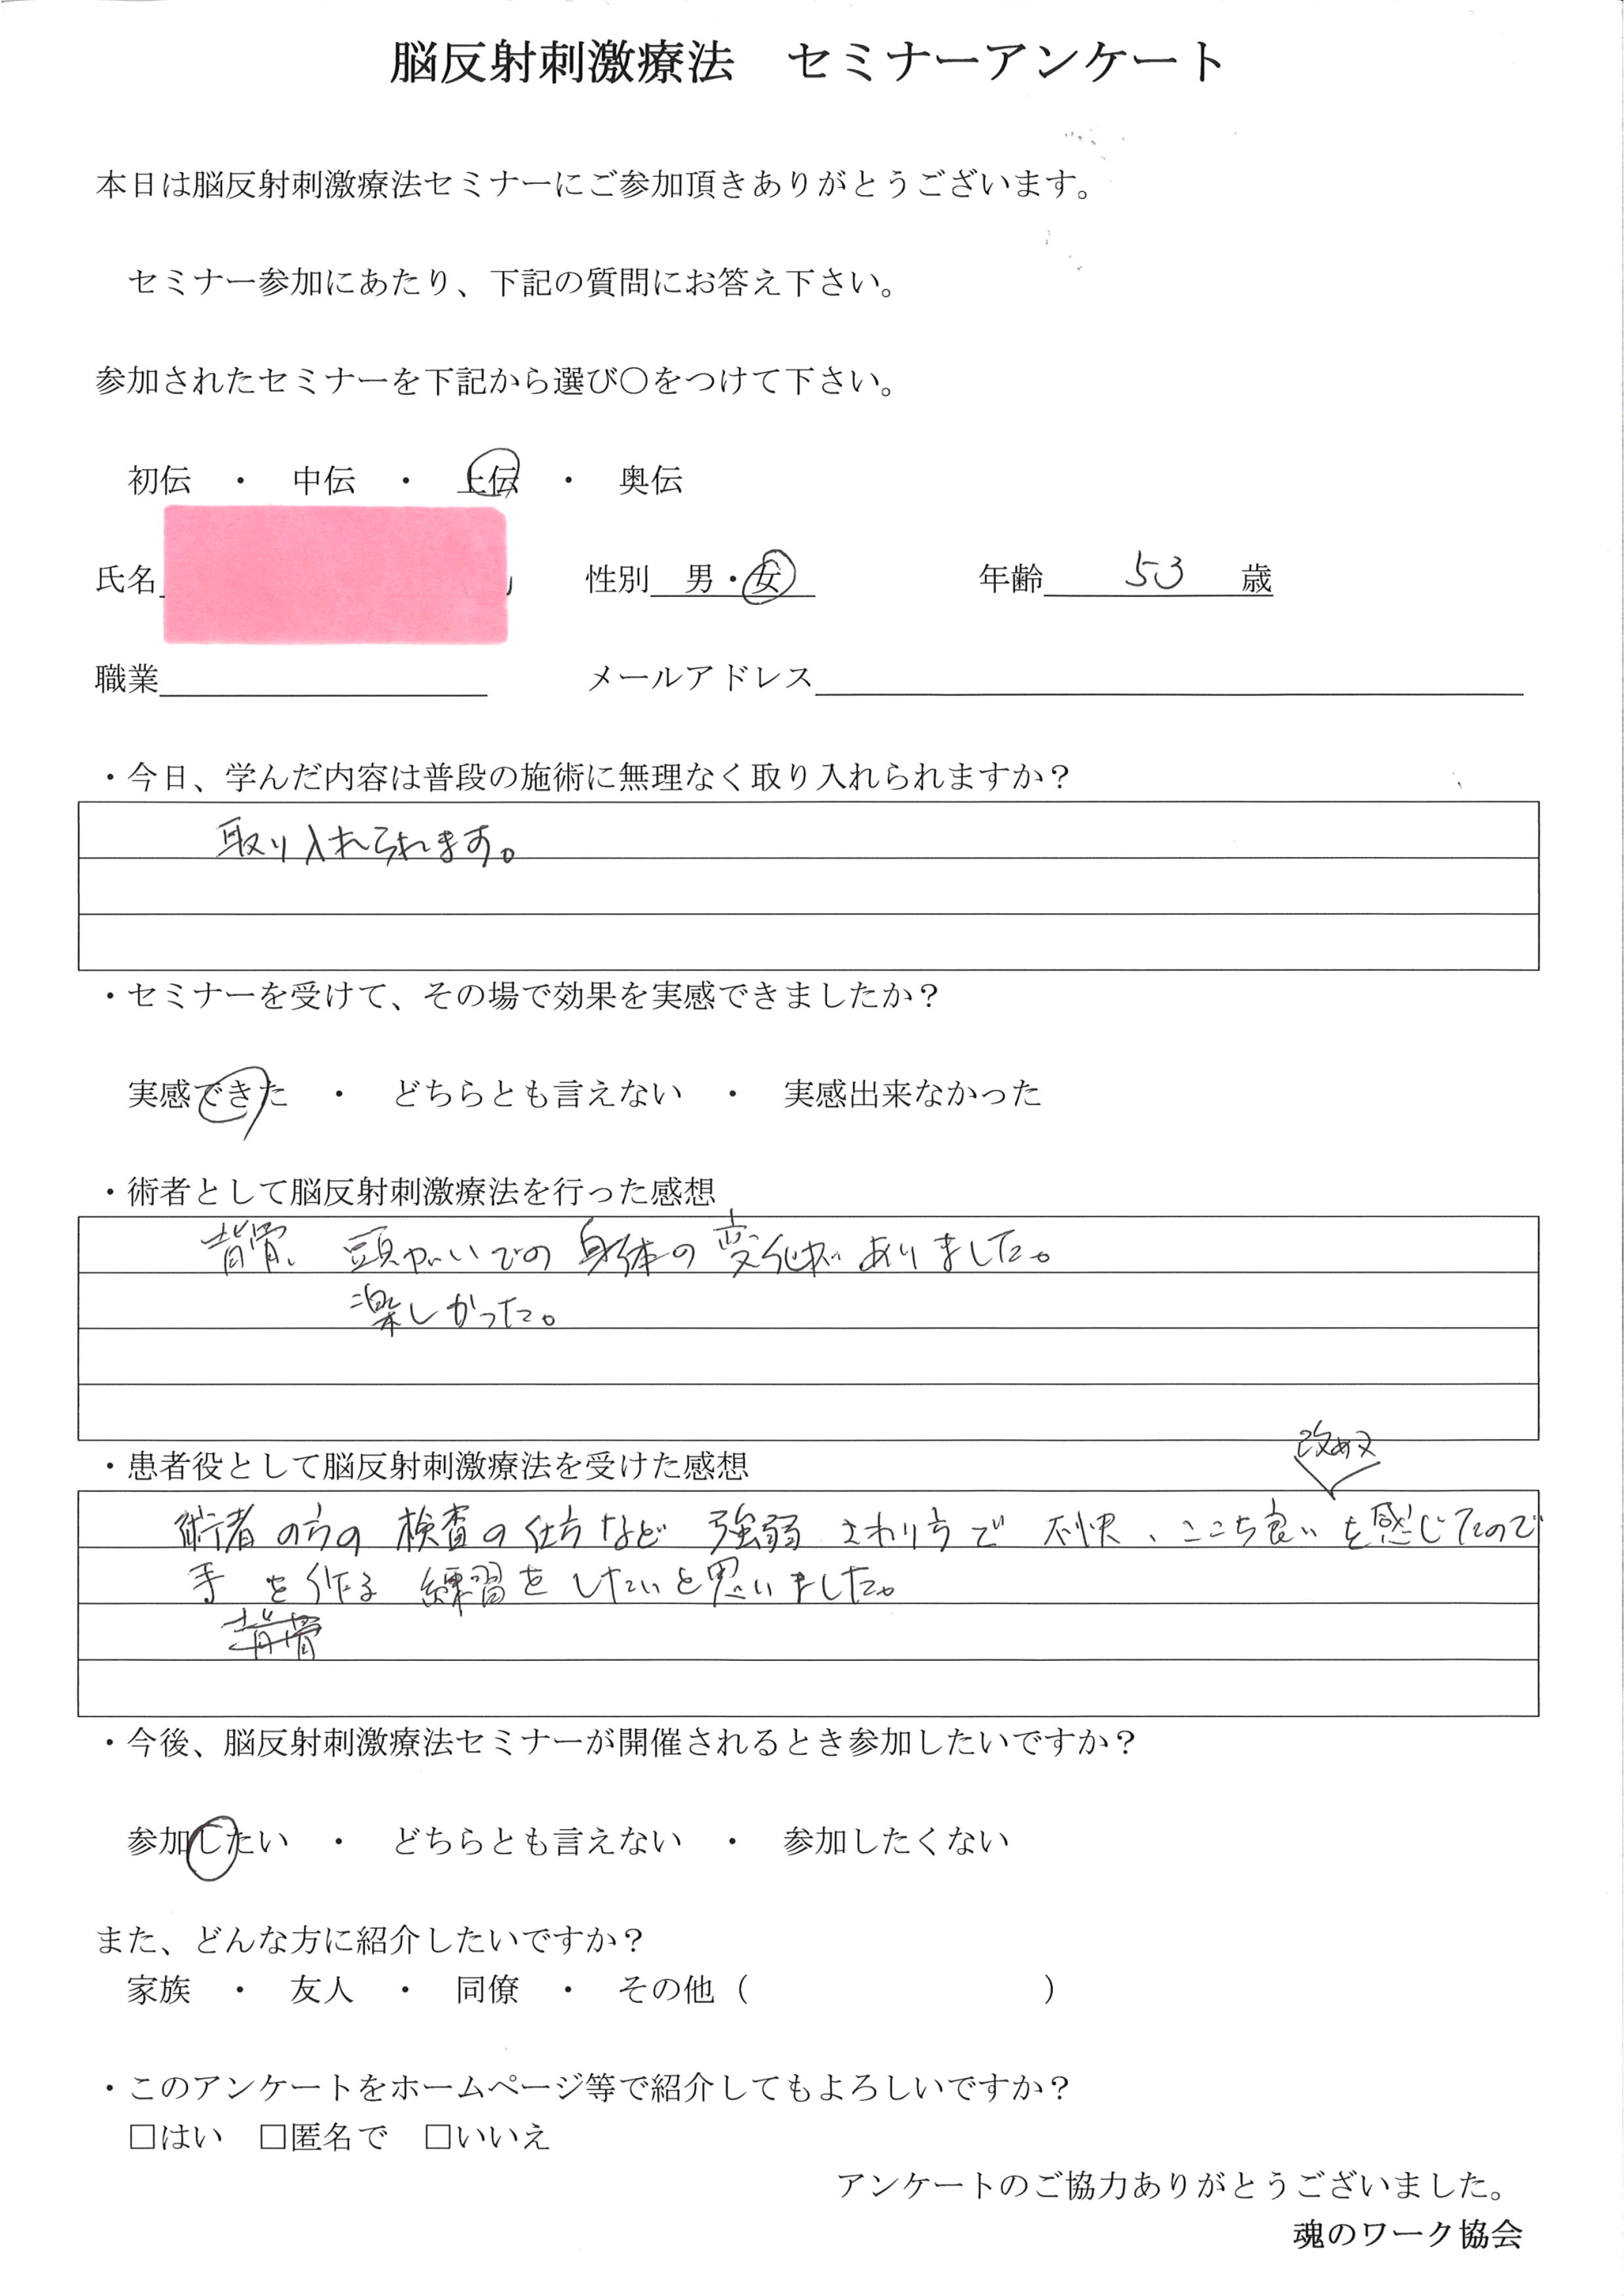 脳反射刺激療法　セミナーアンケート
本日は脳反射刺激療法セミナーにご参加頂きありがとうございます。
セミナー参加にあたり、下記の質問にお答え下さい。
参加されたセミナーを下記から選び〇をつけて下さい。
初伝　・　中伝　・　上伝　・　奥伝
氏名　性別　男・女　年齢　53　歳
職業　メールアドレス
・今日、学んだ内容は普段の施術に無理なく取り入れられますか？
取り入れられます。
・セミナーを受けて、その場で効果を実感できましたか？
実感できた　・　どちらとも言えない　・　実感出来なかった
・術者として脳反射刺激療法を行った感想
背骨、頭がいでの身体の変化がありました。
楽しかった。
・患者役として脳反射刺激療法を受けた感想
改めて
術者の方の検査の仕方など強弱さわり方で不快、ここち良いを感じたので
手を作る練習をしたいと思いました。
背骨
・今後、脳反射刺激療法セミナーが開催されるとき参加したいですか？
参加したい　・　どちらとも言えない　・　参加したくない
また、どんな方に紹介したいですか？
家族　・　友人　・　同僚　・　その他（　　　　　　　　　）
・このアンケートをホームページ等で紹介してもよろしいですか？
□はい　□匿名で　□いいえ
アンケートのご協力ありがとうございました。
魂のワーク協会